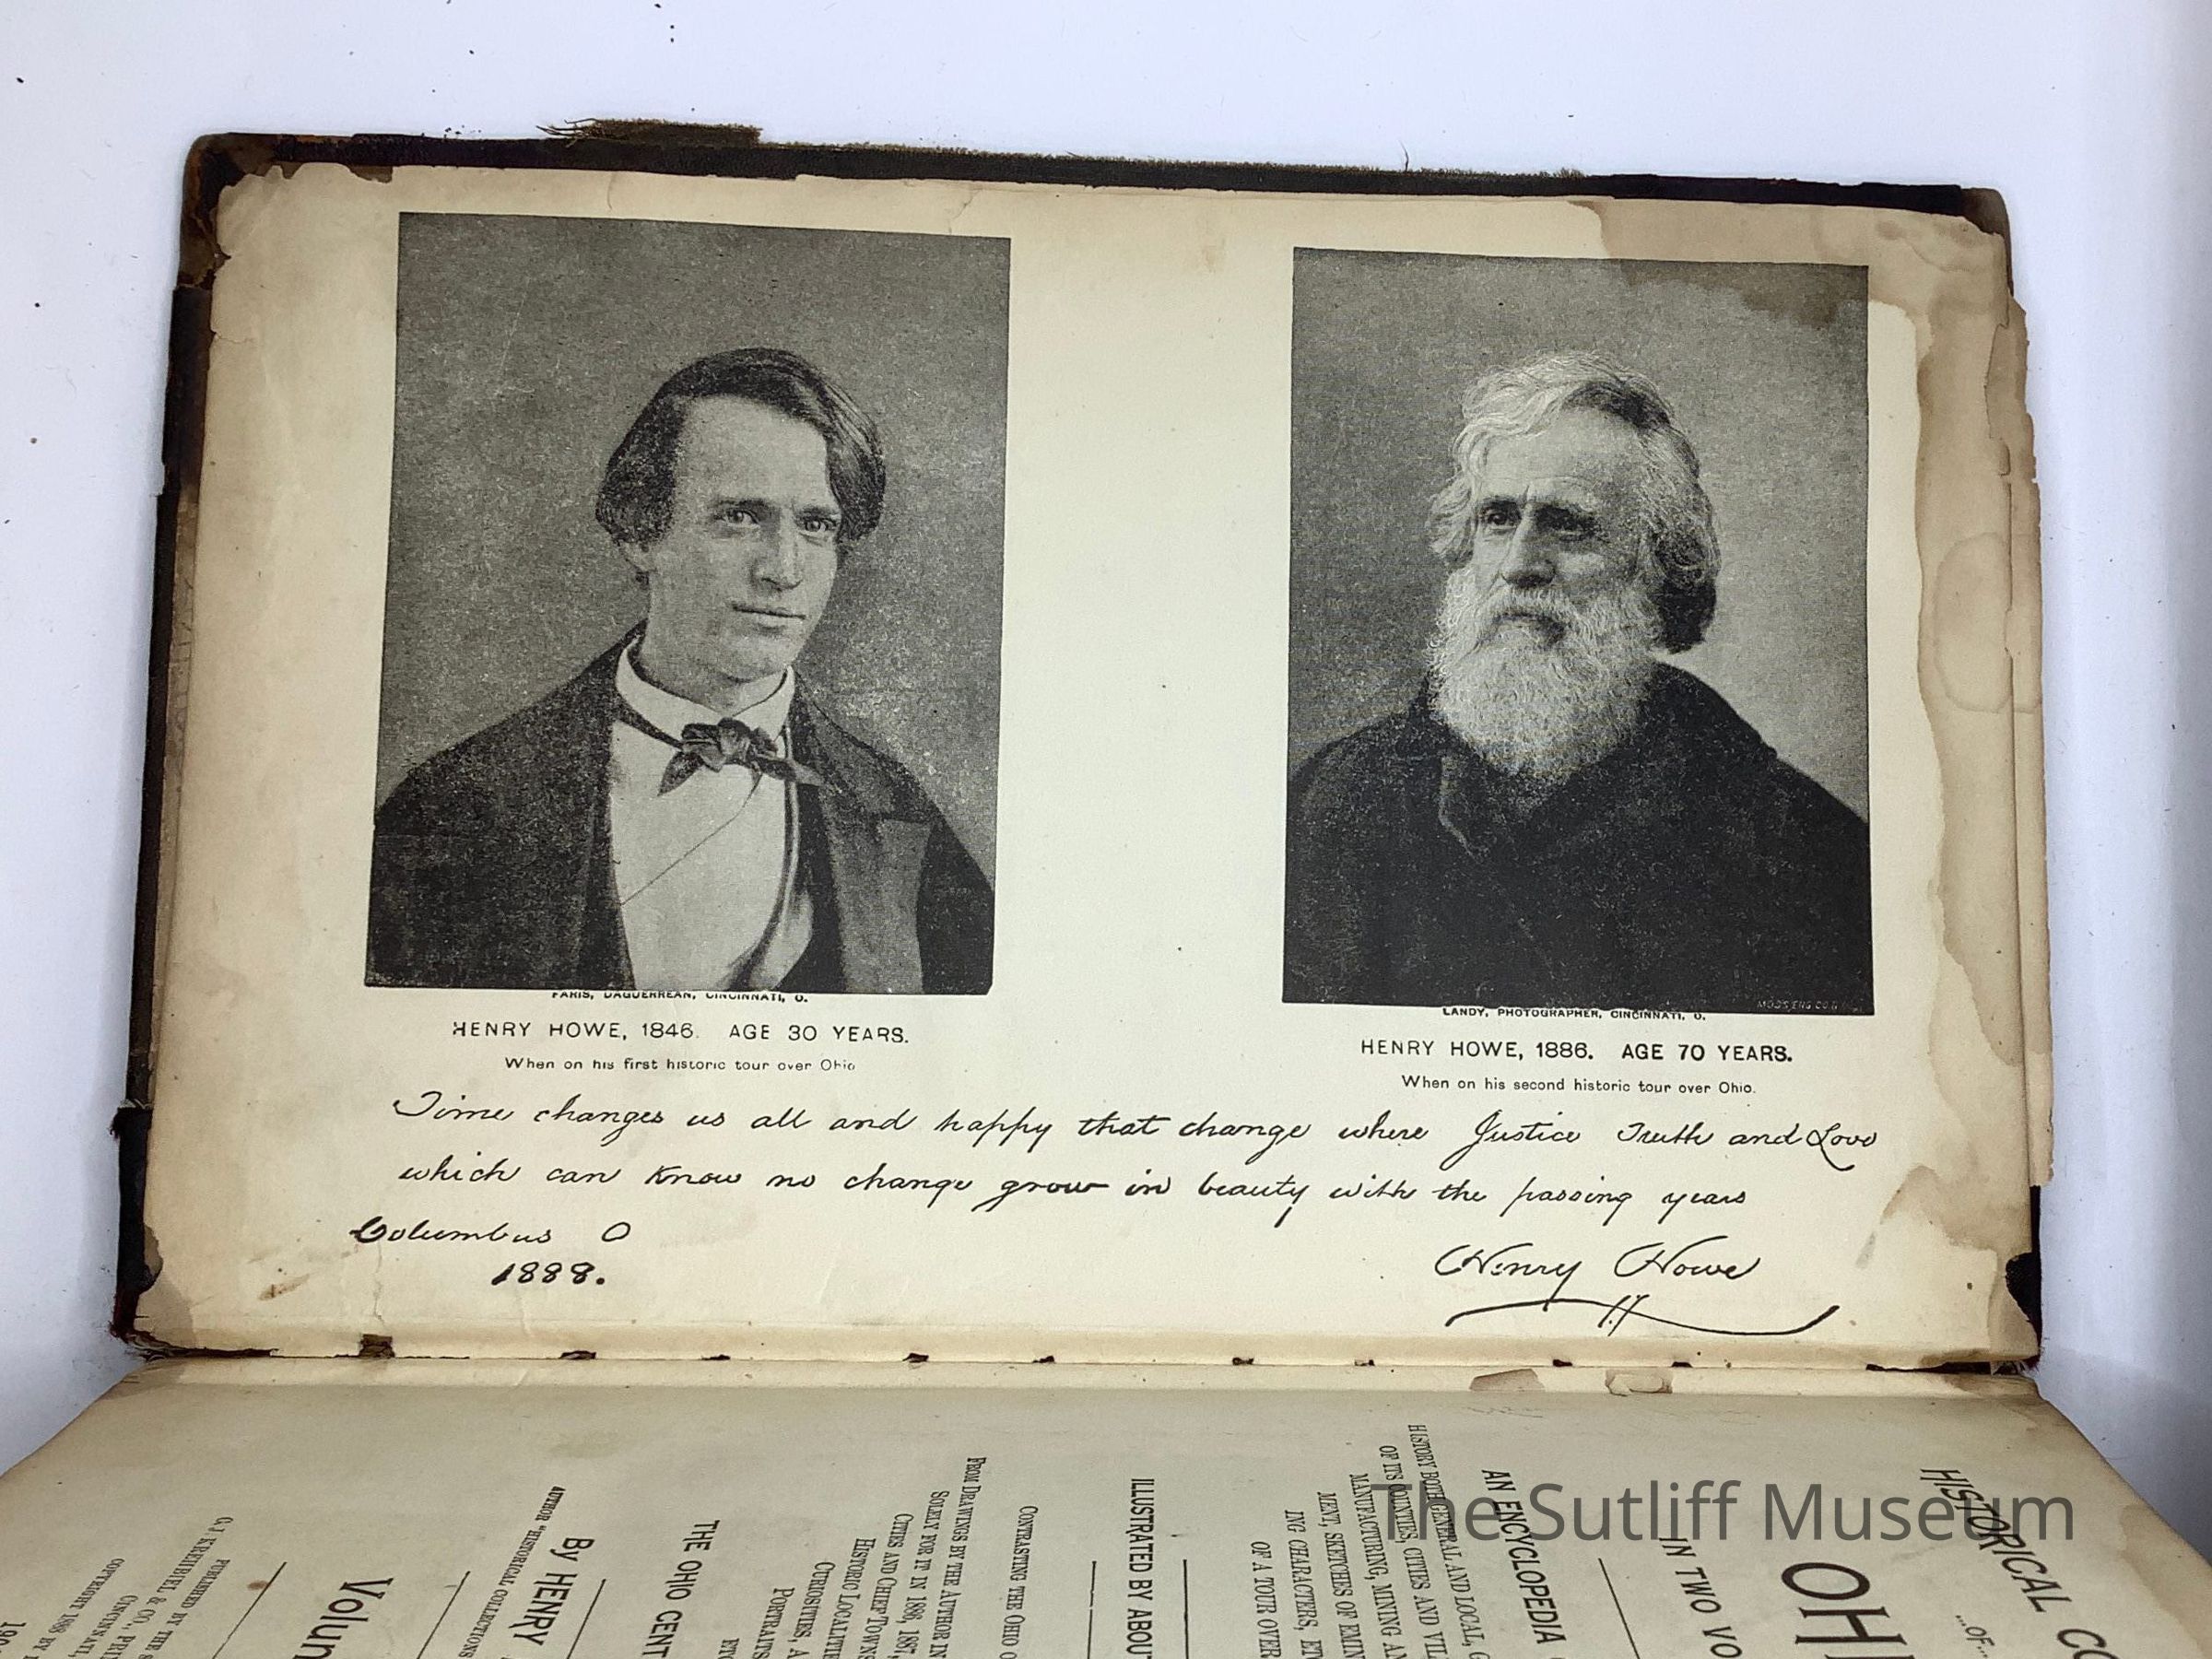 MOSS ENG CO N.Y.
PARIS, DAGUERREAN, CINCINNATI, O.
HENRY HOWE, 1846. AGE 30 YEARS.
When on his first historic tour over Ohio
LANDY, PHOTOGRAPHER, CINCINNATI, O.
HENRY HOWE, 1886. AGE 70 YEARS.
When on his second historic tour over Ohio.
Time changes us all and happy that change where Justice Truth and Love
which can know no change grow in beauty with the passing years
Columbus O
1888.
Henry Howe
HISTORICAL CO
...OF...
OHI
IN TWO VO
AN ENCYCLOPEDIA
HISTORY BOTH GENERAL AND LOCAL, G
OF ITS COUNTIES, CITIES AND VIL
MANUFACTURING, MINING AN
MENT, SKETCHES OF EMIN
ING CHARACTERS, ETC
OF A TOUR OVER
ILLUSTRATED BY ABOUT
CONTRASTING THE OHIO O
FROM DRAWINGS BY THE AUTHOR IN
SOLELY FOR IT IN 1886, 1887,
CITIES AND CHIEF TOWNS
HISTORIC LOCALITIE
CURIOSITIES, A
PORTRAITS
ETC
THE OHIO CENT
By HENRY
AUTHOR "HISTORICAL COLLECTIONS
Volun
PUBLISHED BY THE S
C. J. KREHBIEL & CO., PRI
CINCINNATI,
COPYRIGHT 1888 BY
190
The Sutliff Museum